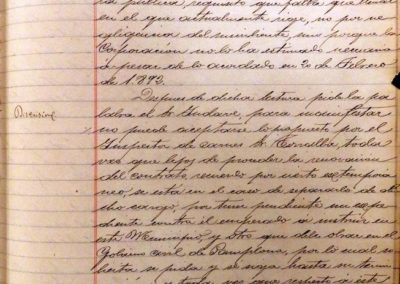 la pública requisito que falta que llenar
en el que actualmente rige, no por ne
gligencia del recurrente sino porque la
Corporación no lo ha estimado necesario
a pesar de lo acordado en 20 de Febrero
de 1892.
Discusión
Despues de dicha lectura pide la pa
labra el Sr. para manifestar
no puede aceptarse lo propuesto por el
Inspector de carnes Sr. Torralba toda
vez que lejos de proceder la renovacion
del contrato recuerdo por ser extempora
neo, se está en el caso de separarle de di
cho cargo, por tener pendiente un espe
diente contra él empezado a instruir en
este Municipio, y otro que debe obrar en el
Gobierno civil de Pamplona, por lo cual so
licita se pida y se siga hasta su termi
toda vez que respecto á este